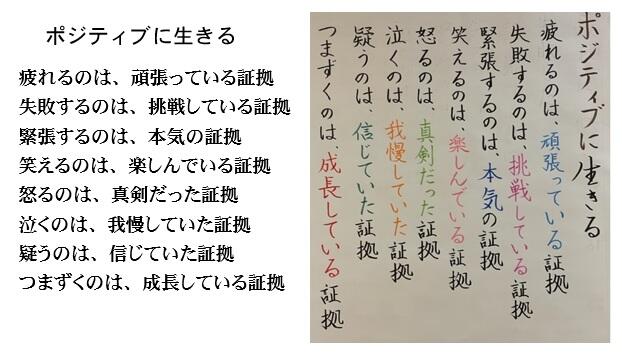 ポジティブに生きる
疲れるのは、頑張っている証拠
失敗するのは、挑戦している証拠
緊張するのは、本気の証拠
笑えるのは、楽しんでいる証拠
怒るのは、真剣だった証拠
泣くのは、我慢していた証拠
疑うのは、信じていた証拠
つまずくのは、成長している証拠
ポジティブに生きる
疲れるのは、頑張っている証拠
失敗するのは、挑戦している証拠
緊張するのは、本気の証拠
笑えるのは、楽しんでいる証拠
怒るのは、真剣だった証拠
泣くのは、我慢していた証拠
疑うのは、信じていた証拠
つまずくのは、成長している証拠